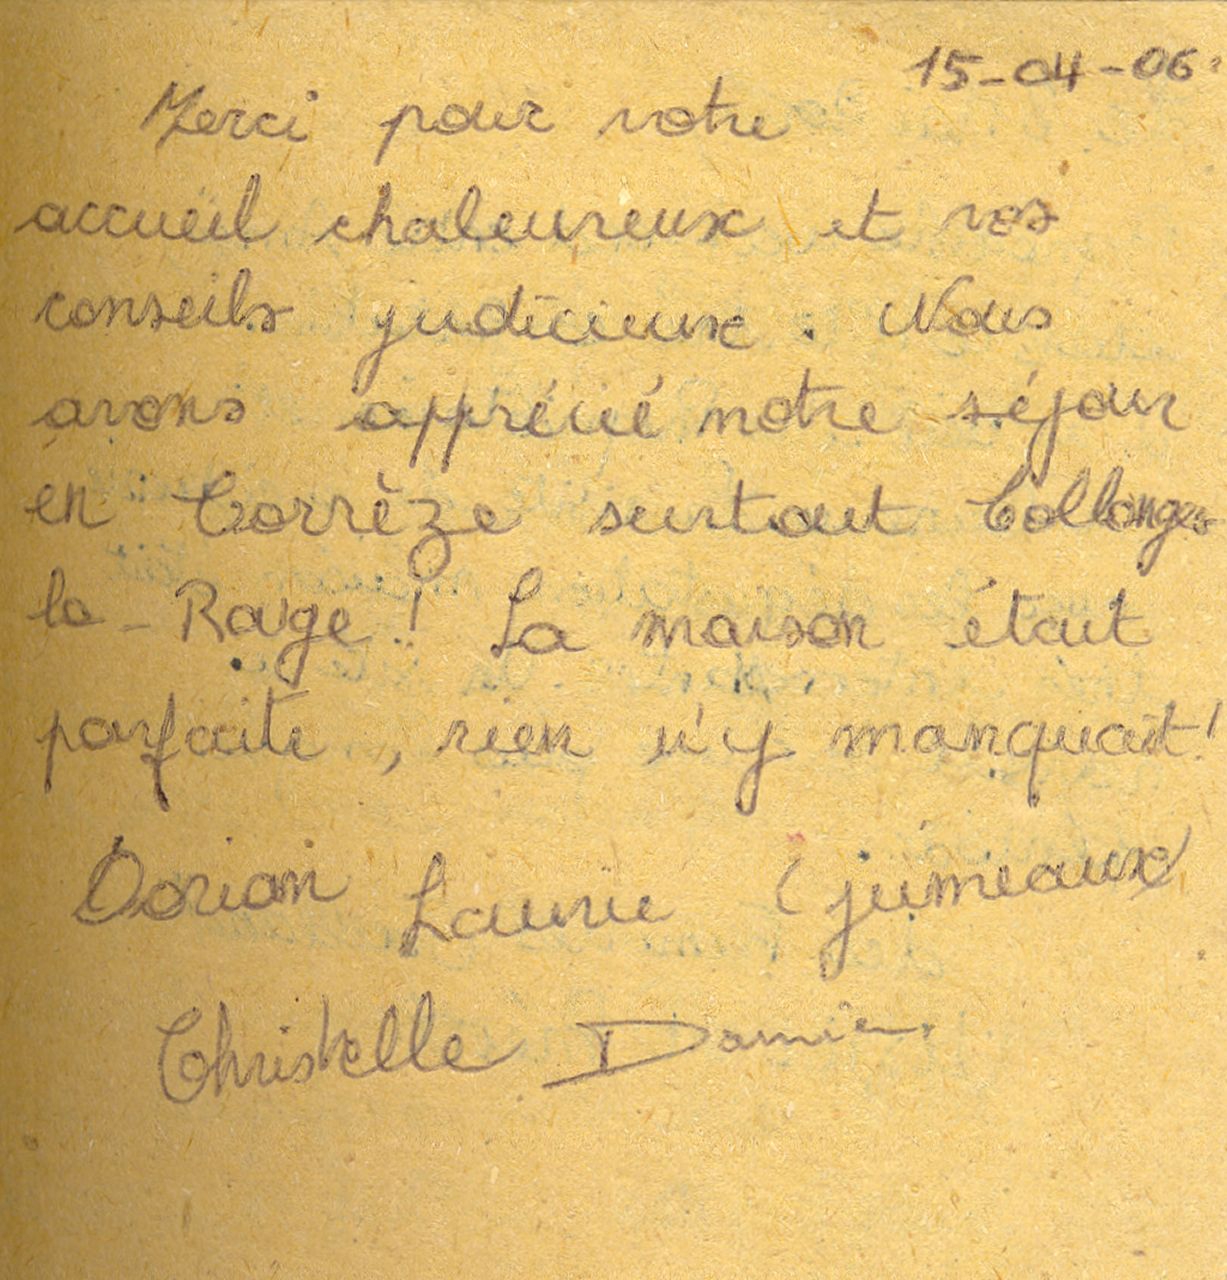 15-04-06.
Merci pour votre
accueil chaleureux et vos
conseils judicieux. Nous
avons apprécié notre séjour
en Corrèze surtout Collonges
la-Rouge ! La maison était
parfaite, rien n'y manquait !
Dorian Laurie (jumeaux)
Christelle Damien